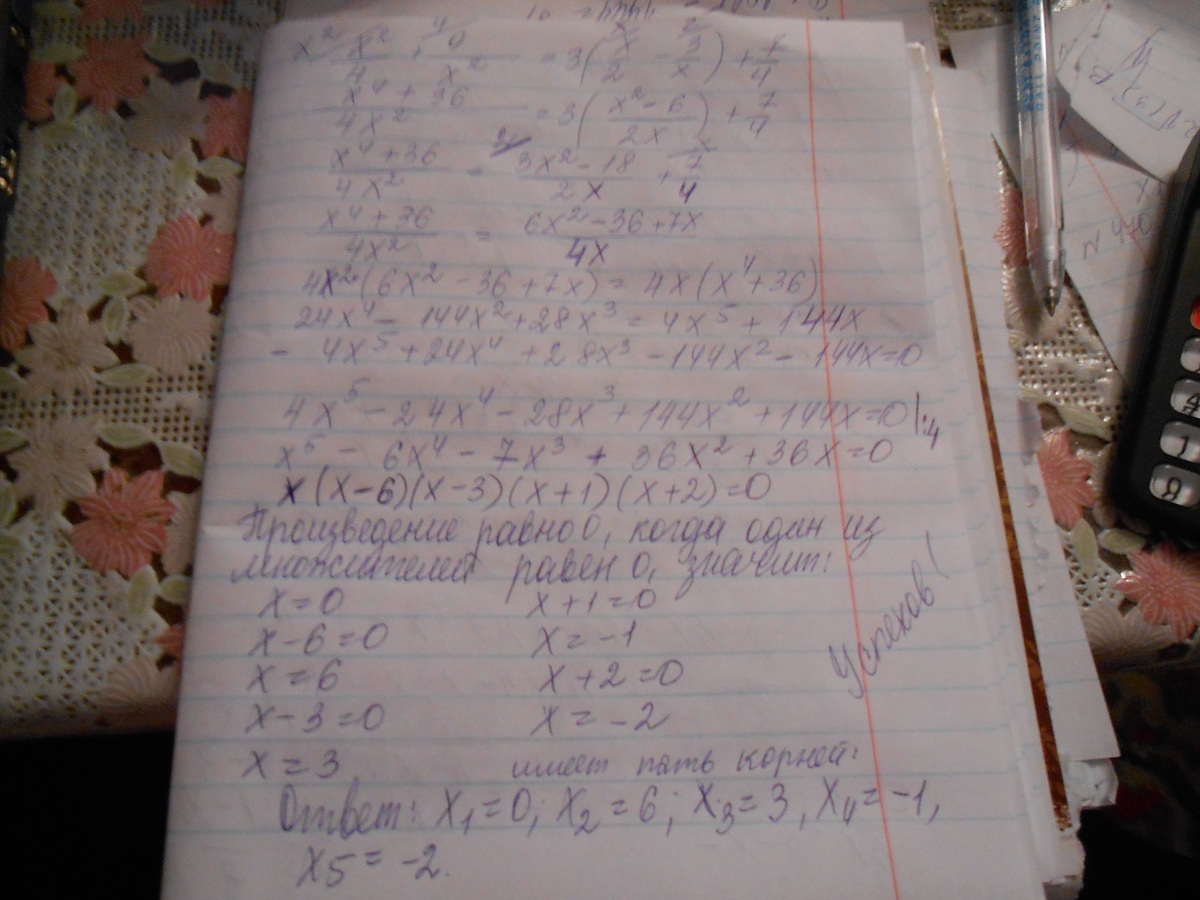 x² x²/4 + 4 9/x² = 3(x x/2 - 2 3/x) + 7/4
(x⁴+36)/4x² = 3((x²-6)/2x) + 7/4
(x⁴+36)/4x² = 2/ (3x²-18)/2x + x/ 7/4
(x⁴+36)/4x² = (6x²-36+7x)/4x
4x²(6x²-36+7x) = 4x(x⁴+36)
24x⁴ - 144x²+28x³ = 4x⁵ + 144x
- 4x⁵ +24x⁴ +28x³ -144x² - 144x=0
4x⁵ - 24x⁴ - 28x³ + 144x² + 144x=0 |:4
x⁵ - 6x⁴ - 7x³ + 36x² + 36x=0
x(x-6)(x-3)(x+1)(x+2)=0
Произведение равно 0, когда один из
множителей равен 0, значит:
x=0 x+1=0
x-6=0 x=-1
x=6 x+2=0
x-3=0 x=-2
x=3 имеет пять корней:
Ответ: x₁=0; x₂=6; x₃=3, x₄=-1,
x5=-2.
Успехов!